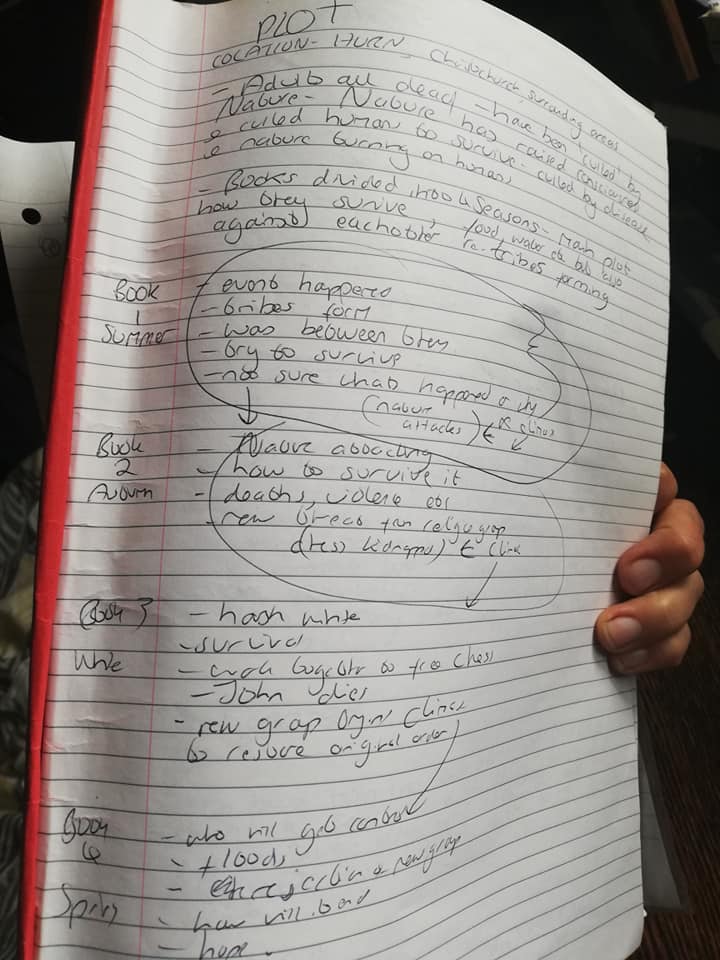 PLOT
LOCATION - HURN, Christchurch, surrounding areas
- Adults all dead - have been 'culled' by
Nature - Nature has raised
& culled human to survive - culled by disease
& nature turning on humans
- Books divided into 4 seasons - Main plot
how they survive, food, water etc but also
against eachother re. tribes forming
Book - event happened
1 - tribes form
Summer - was between them
- try to survive
- not sure what happened or why
(nature
attacks)
Book - Nature attacking
2 - how to survive it
Autumn - deaths, violence etc
- new threat from
kidnapped)
Book 3 - harsh
- survival
- work together to free Chess
- John dies
- new group
to restore original order
Book - who will get control
4 - floods
Spring - new group
- how will
- hope.